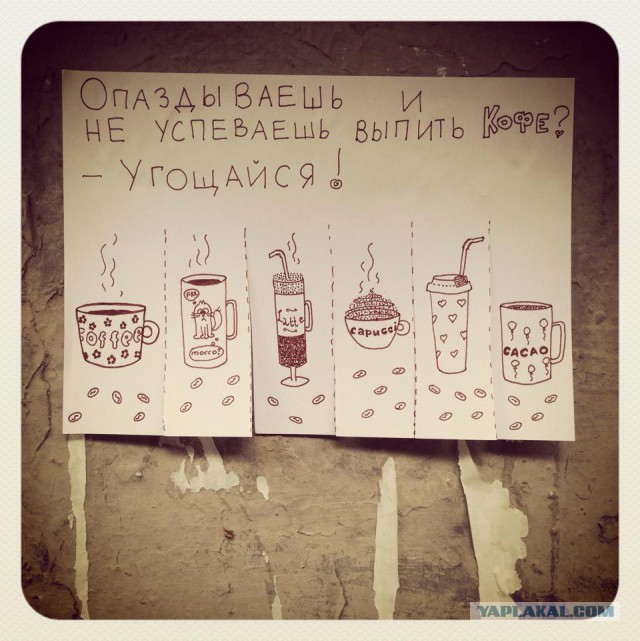 Опаздываешь и
не успеваешь выпить Кофе?
– Угощайся!
coffee
latte
capucci
CACAO
YAPLAKAL.COM